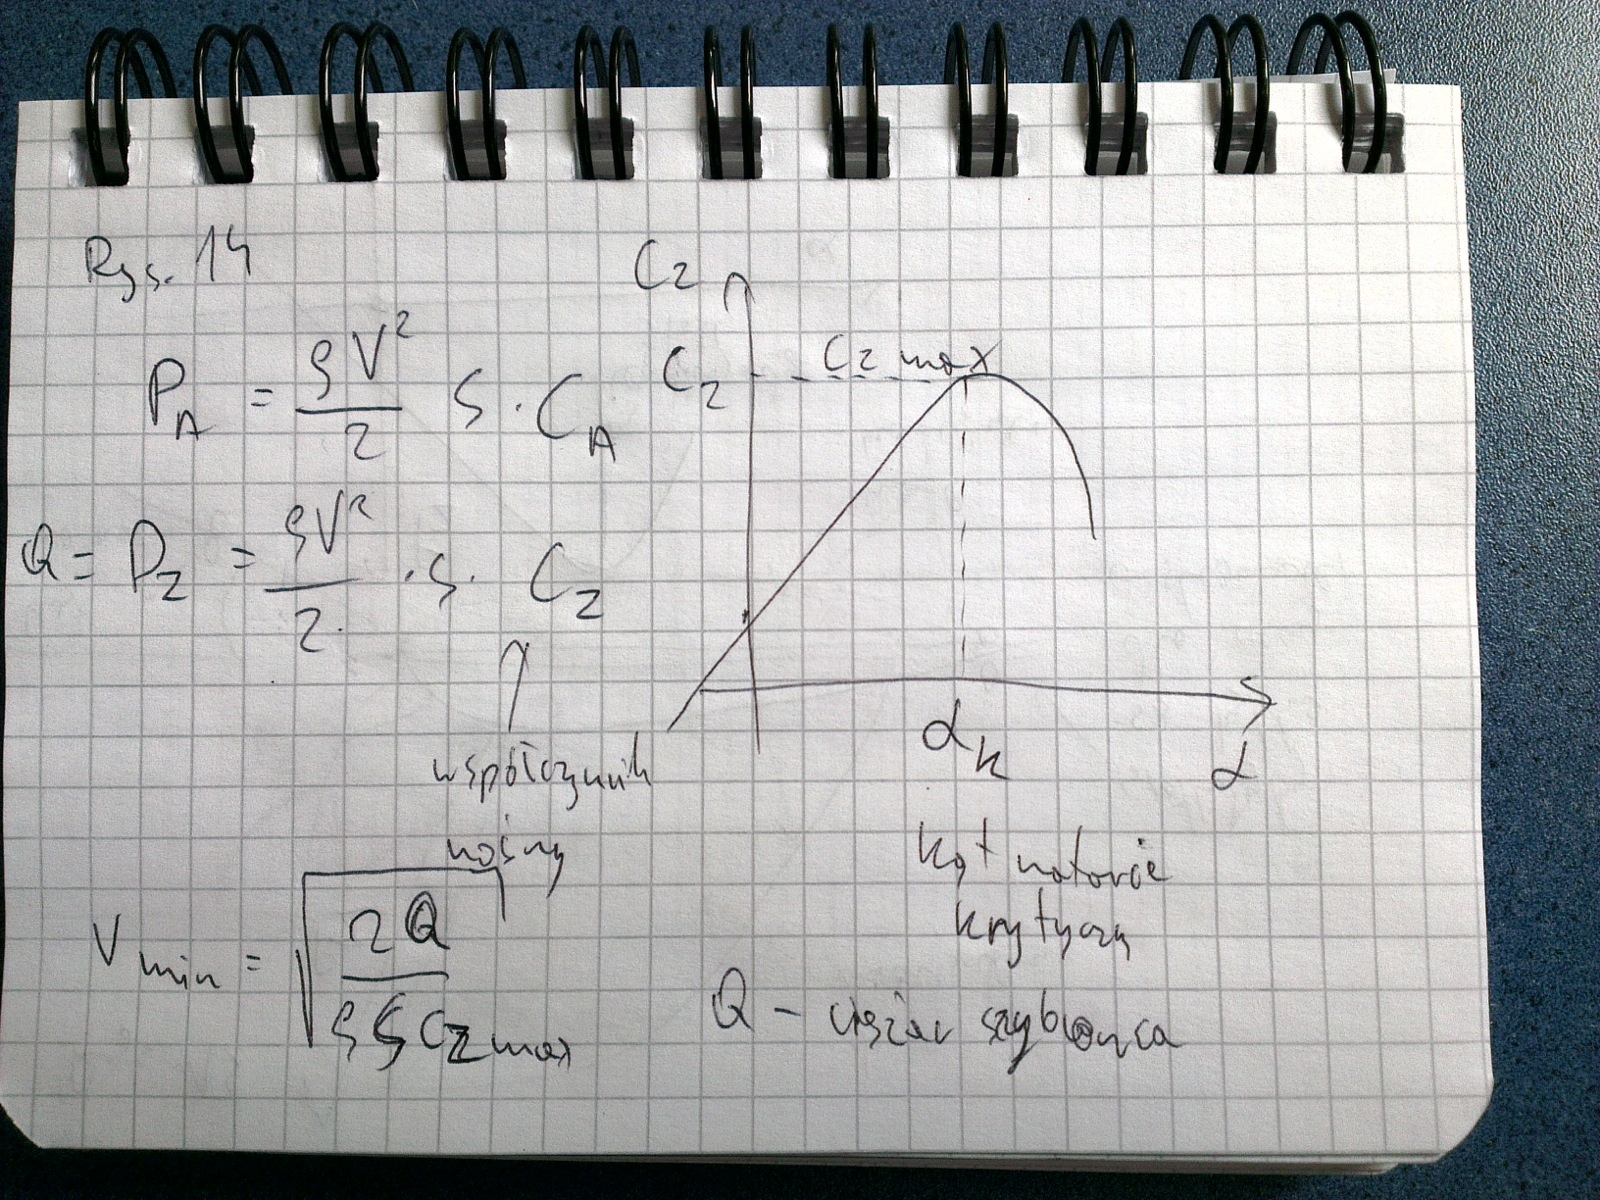 Rys. 14
P_A = ρV²/2 S · C_A
Q = P_z = ρV²/2 · S · C_z
współczynnik
nośny
V min = √(2Q / ρ S Cz max)
Cz
Cz
Cz max
α_k
α
kąt natarcie
krytyczny
Q – ciężar szybowca